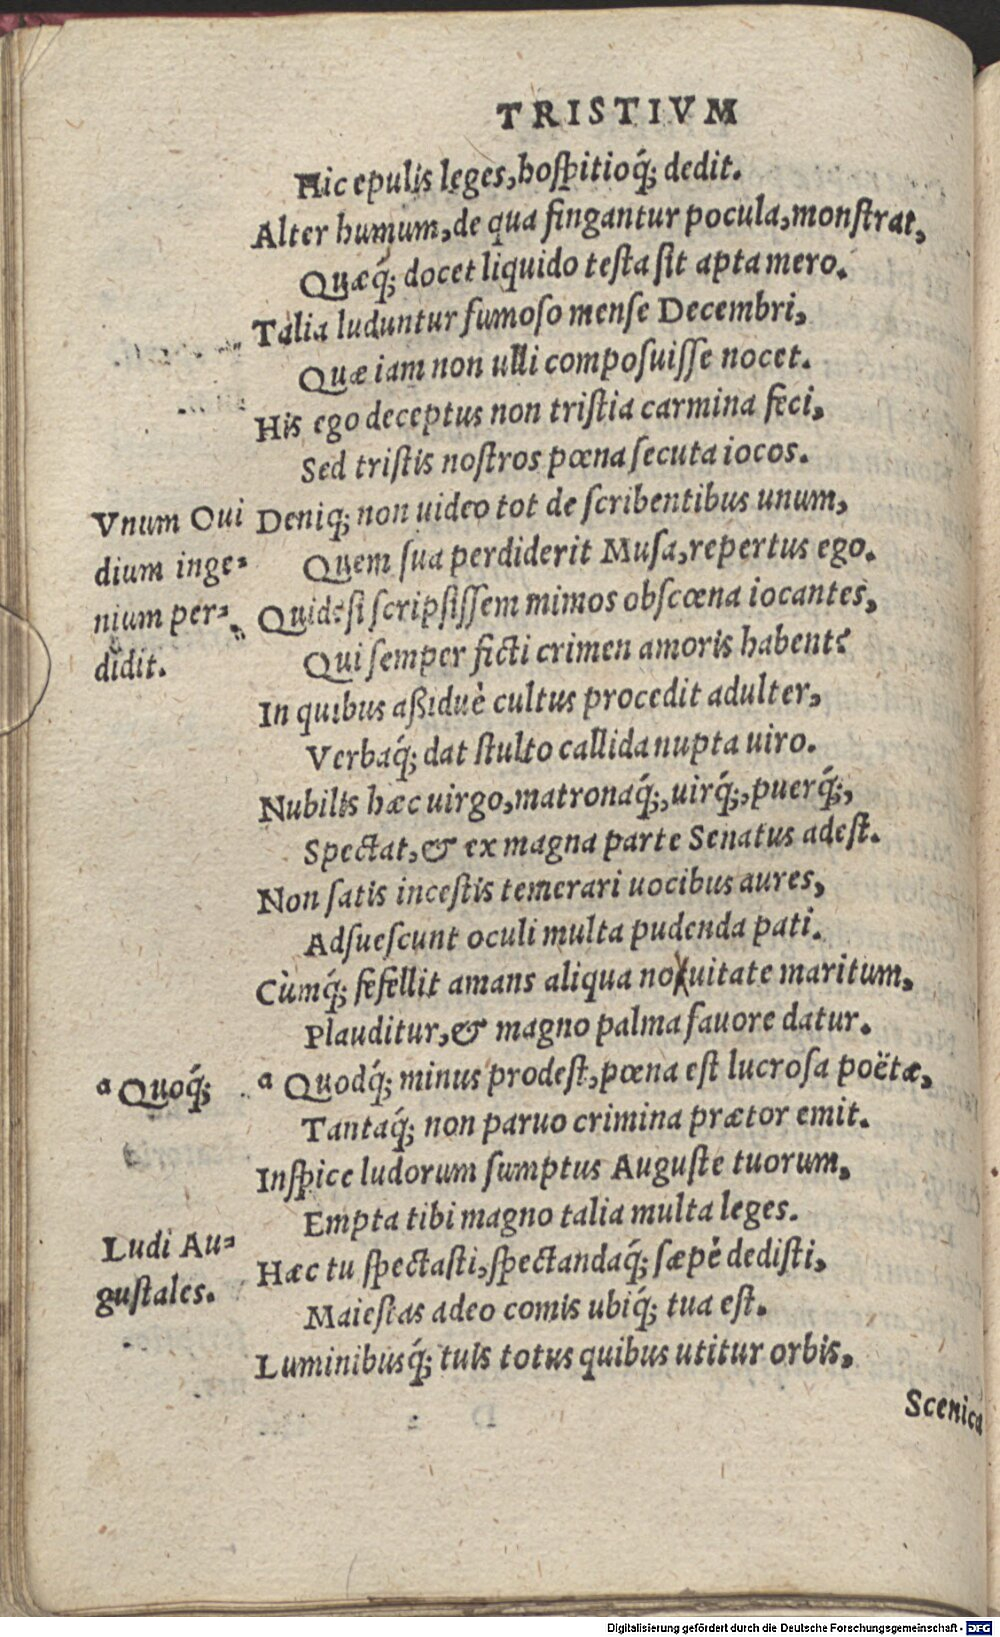 TRISTIVM
Hic epulis leges, hoſpitioq́; dedit.
Alter humum, de qua fingantur pocula, monſtrat,
Quæq́; docet liquido teſta ſit apta mero.
Talia luduntur fumoſo menſe Decembri,
Quæ iam non ulli compoſuiſſe nocet.
His ego deceptus non triſtia carmina feci,
Sed triſtis noſtros pœna ſecuta iocos.
Vnum Oui
dium inge-
nium per-
didit.
Deniq; non uideo tot de ſcribentibus unum,
Quem ſua perdiderit Muſa, repertus ego.
Quid ſi ſcripſiſſem mimos obſcœna iocantes,
Qui ſemper ficti crimen amoris habent?
In quibus aßiduè cultus procedit adulter,
Verbaq́; dat ſtulto callida nupta uiro.
Nubilis hæc uirgo, matronaq́;, uirq́;, puerq́;,
Spectat, & ex magna parte Senatus adeſt.
Non ſatis inceſtis temerari uocibus aures,
Adſueſcunt oculi multa pudenda pati.
Cùmq́; fefellit amans aliqua nouitate maritum,
Plauditur, & magno palma fauore datur.
a Quoq́;
a Quodq́; minus prodeſt, pœna eſt lucroſa poëtæ,
Tantaq́; non paruo crimina prætor emit.
Inſpice ludorum ſumptus Auguſte tuorum,
Empta tibi magno talia multa leges.
Ludi Au-
guſtales.
Hæc tu ſpectaſti, ſpectandaq́; ſæpè dediſti,
Maieſtas adeo comis ubiq́; tua eſt.
Luminibusq́; tuis totus quibus utitur orbis,
Scenica
Digitalisierung gefördert durch die Deutsche Forschungsgemeinschaft - DFG